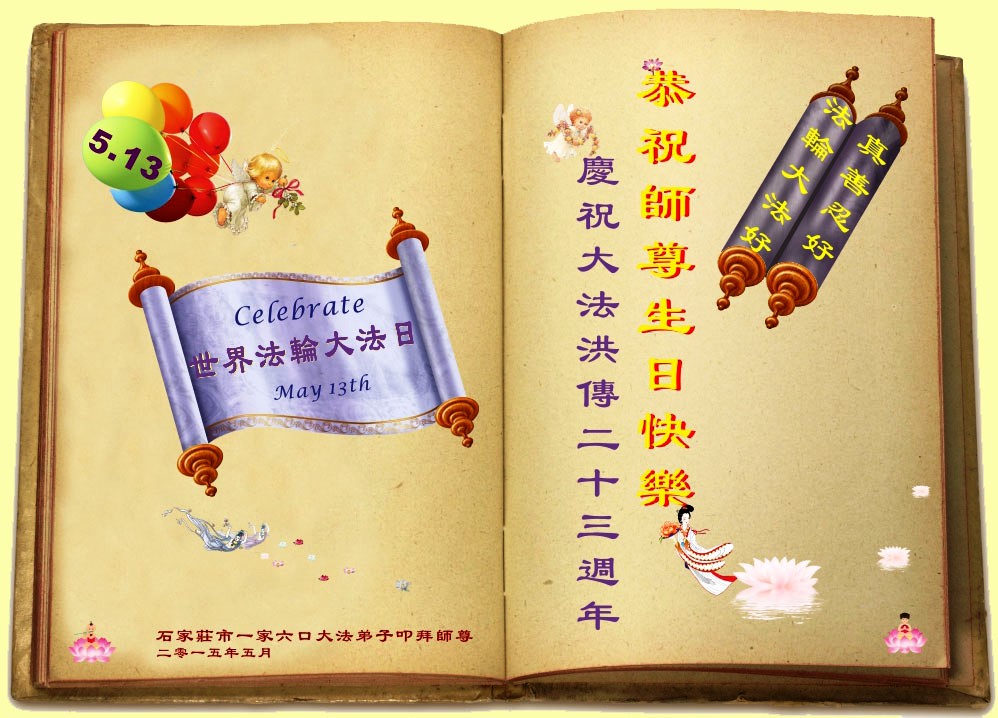 5.13
Celebrate
世界法輪大法日
May 13th
石家莊市一家六口大法弟子叩拜師尊
二零一五年五月
恭祝師尊生日快樂
慶祝大法洪傳二十三週年
真善忍好
法輪大法好